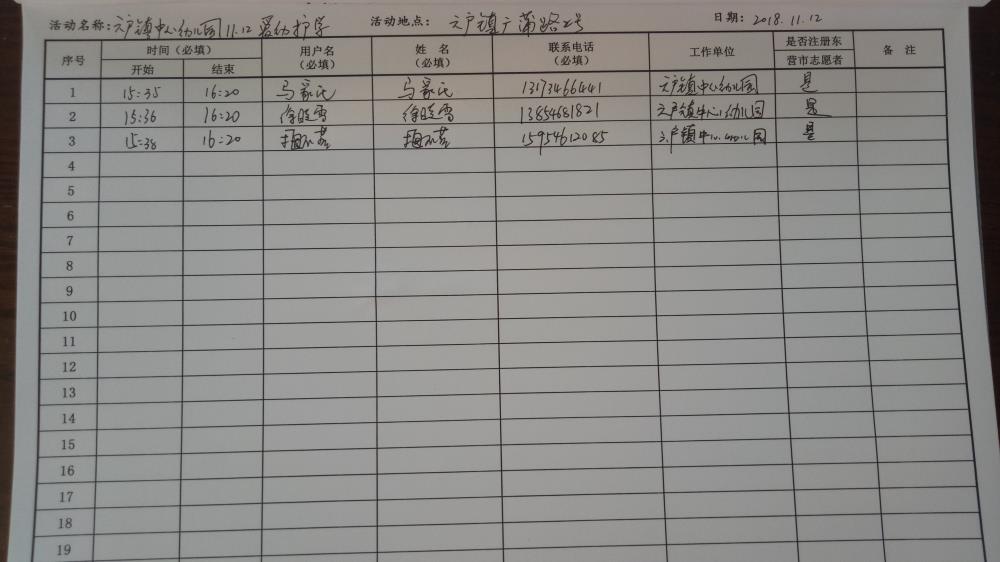 活动名称：六户镇中心幼儿园11.12爱幼护学 活动地点： 六户镇广蒲路2号 日期：2018.11.12
序号 时间（必填） 用户名（必填） 姓名（必填） 联系电话（必填） 工作单位 是否注册东营市志愿者 备注
开始 结束
1 15:35 16:20 13173466441 六户镇中心幼儿园 是
2 15:36 16:20 徐晓雪 徐晓雪 13854681821 六户镇中心幼儿园 是
3 15:38 16:20 15954612085 六户镇中心幼儿园 是
4
5
6
7
8
9
10
11
12
13
14
15
16
17
18
19